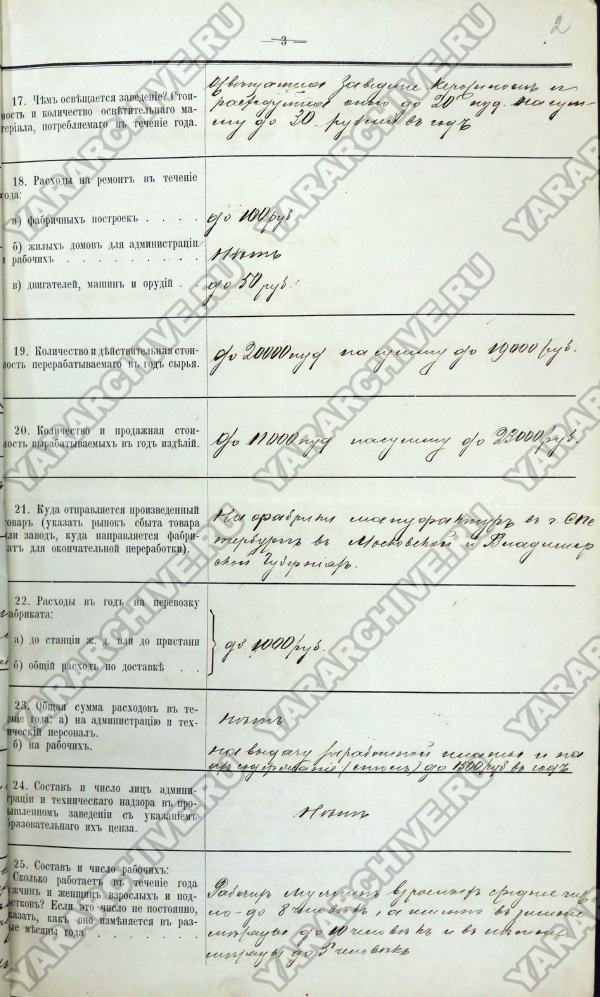 2
— 3 —
17. Чѣмъ освѣщается заведеніе? Стои-
мость и количество освѣтительнаго ма-
теріала, потребляемаго въ теченіе года.
Освѣщается Заведеніе Керосиномъ и
расходуется онаго до 20 пуд. на сум-
му до 30 рублей въ годъ
18. Расходы на ремонтъ въ теченіе
года:
а) фабричныхъ построекъ . . . .
до 100 руб
б) жилыхъ домовъ для администраціи
и рабочихъ . . . . . . . .
Нѣтъ
в) двигателей, машинъ и орудій . .
до 50 руб.
19. Количество и дѣйствительная стои-
мость перерабатываемаго въ годъ сырья.
до 20000 пуд на сумму до 19000 руб.
20. Количество и продажная стои-
мость вырабатываемыхъ въ годъ издѣлій.
до 11000 пуд на сумму до 23000 руб.
21. Куда отправляется произведенный
товаръ (указать рынокъ сбыта товара
или заводъ, куда направляется фабри-
катъ для окончательной переработки).
На фабрики мануфактуръ въ г. СПе
тербургъ въ Московской и Владимир
ской Губерніяхъ.
22. Расходы въ годъ на перевозку
фабриката:
а) до станціи ж. д. или до пристани
б) общій расходъ по доставкѣ . .
до 1000 руб.
23. Общая сумма расходовъ въ те-
ченіе года: а) на администрацію и тех-
ническій персоналъ.
нѣтъ
б) на рабочихъ.
на выдачу заработной платы и на
ихъ содержаніе (столъ) до 1500 руб въ годъ
24. Составъ и число лицъ админи-
страціи и техническаго надзора въ про-
мышленномъ заведеніи съ указаніемъ
образовательнаго ихъ ценза.
Нѣтъ
25. Составъ и число рабочихъ:
Сколько работаетъ въ теченіе года
мужчинъ и женщинъ взрослыхъ и под-
ростковъ? Если это число не постоянно,
указать, какъ оно измѣняется въ раз-
ные мѣсяцы года . . . . . . .
Рабочихъ мужчинъ взрослыхъ среднее чис
ло до 8 человѣкъ, а именно въ зимніе
мѣсяцы до 10 человѣкъ и въ лѣтніе
мѣсяцы до 5 человѣкъ
YARARCHIVE.RU